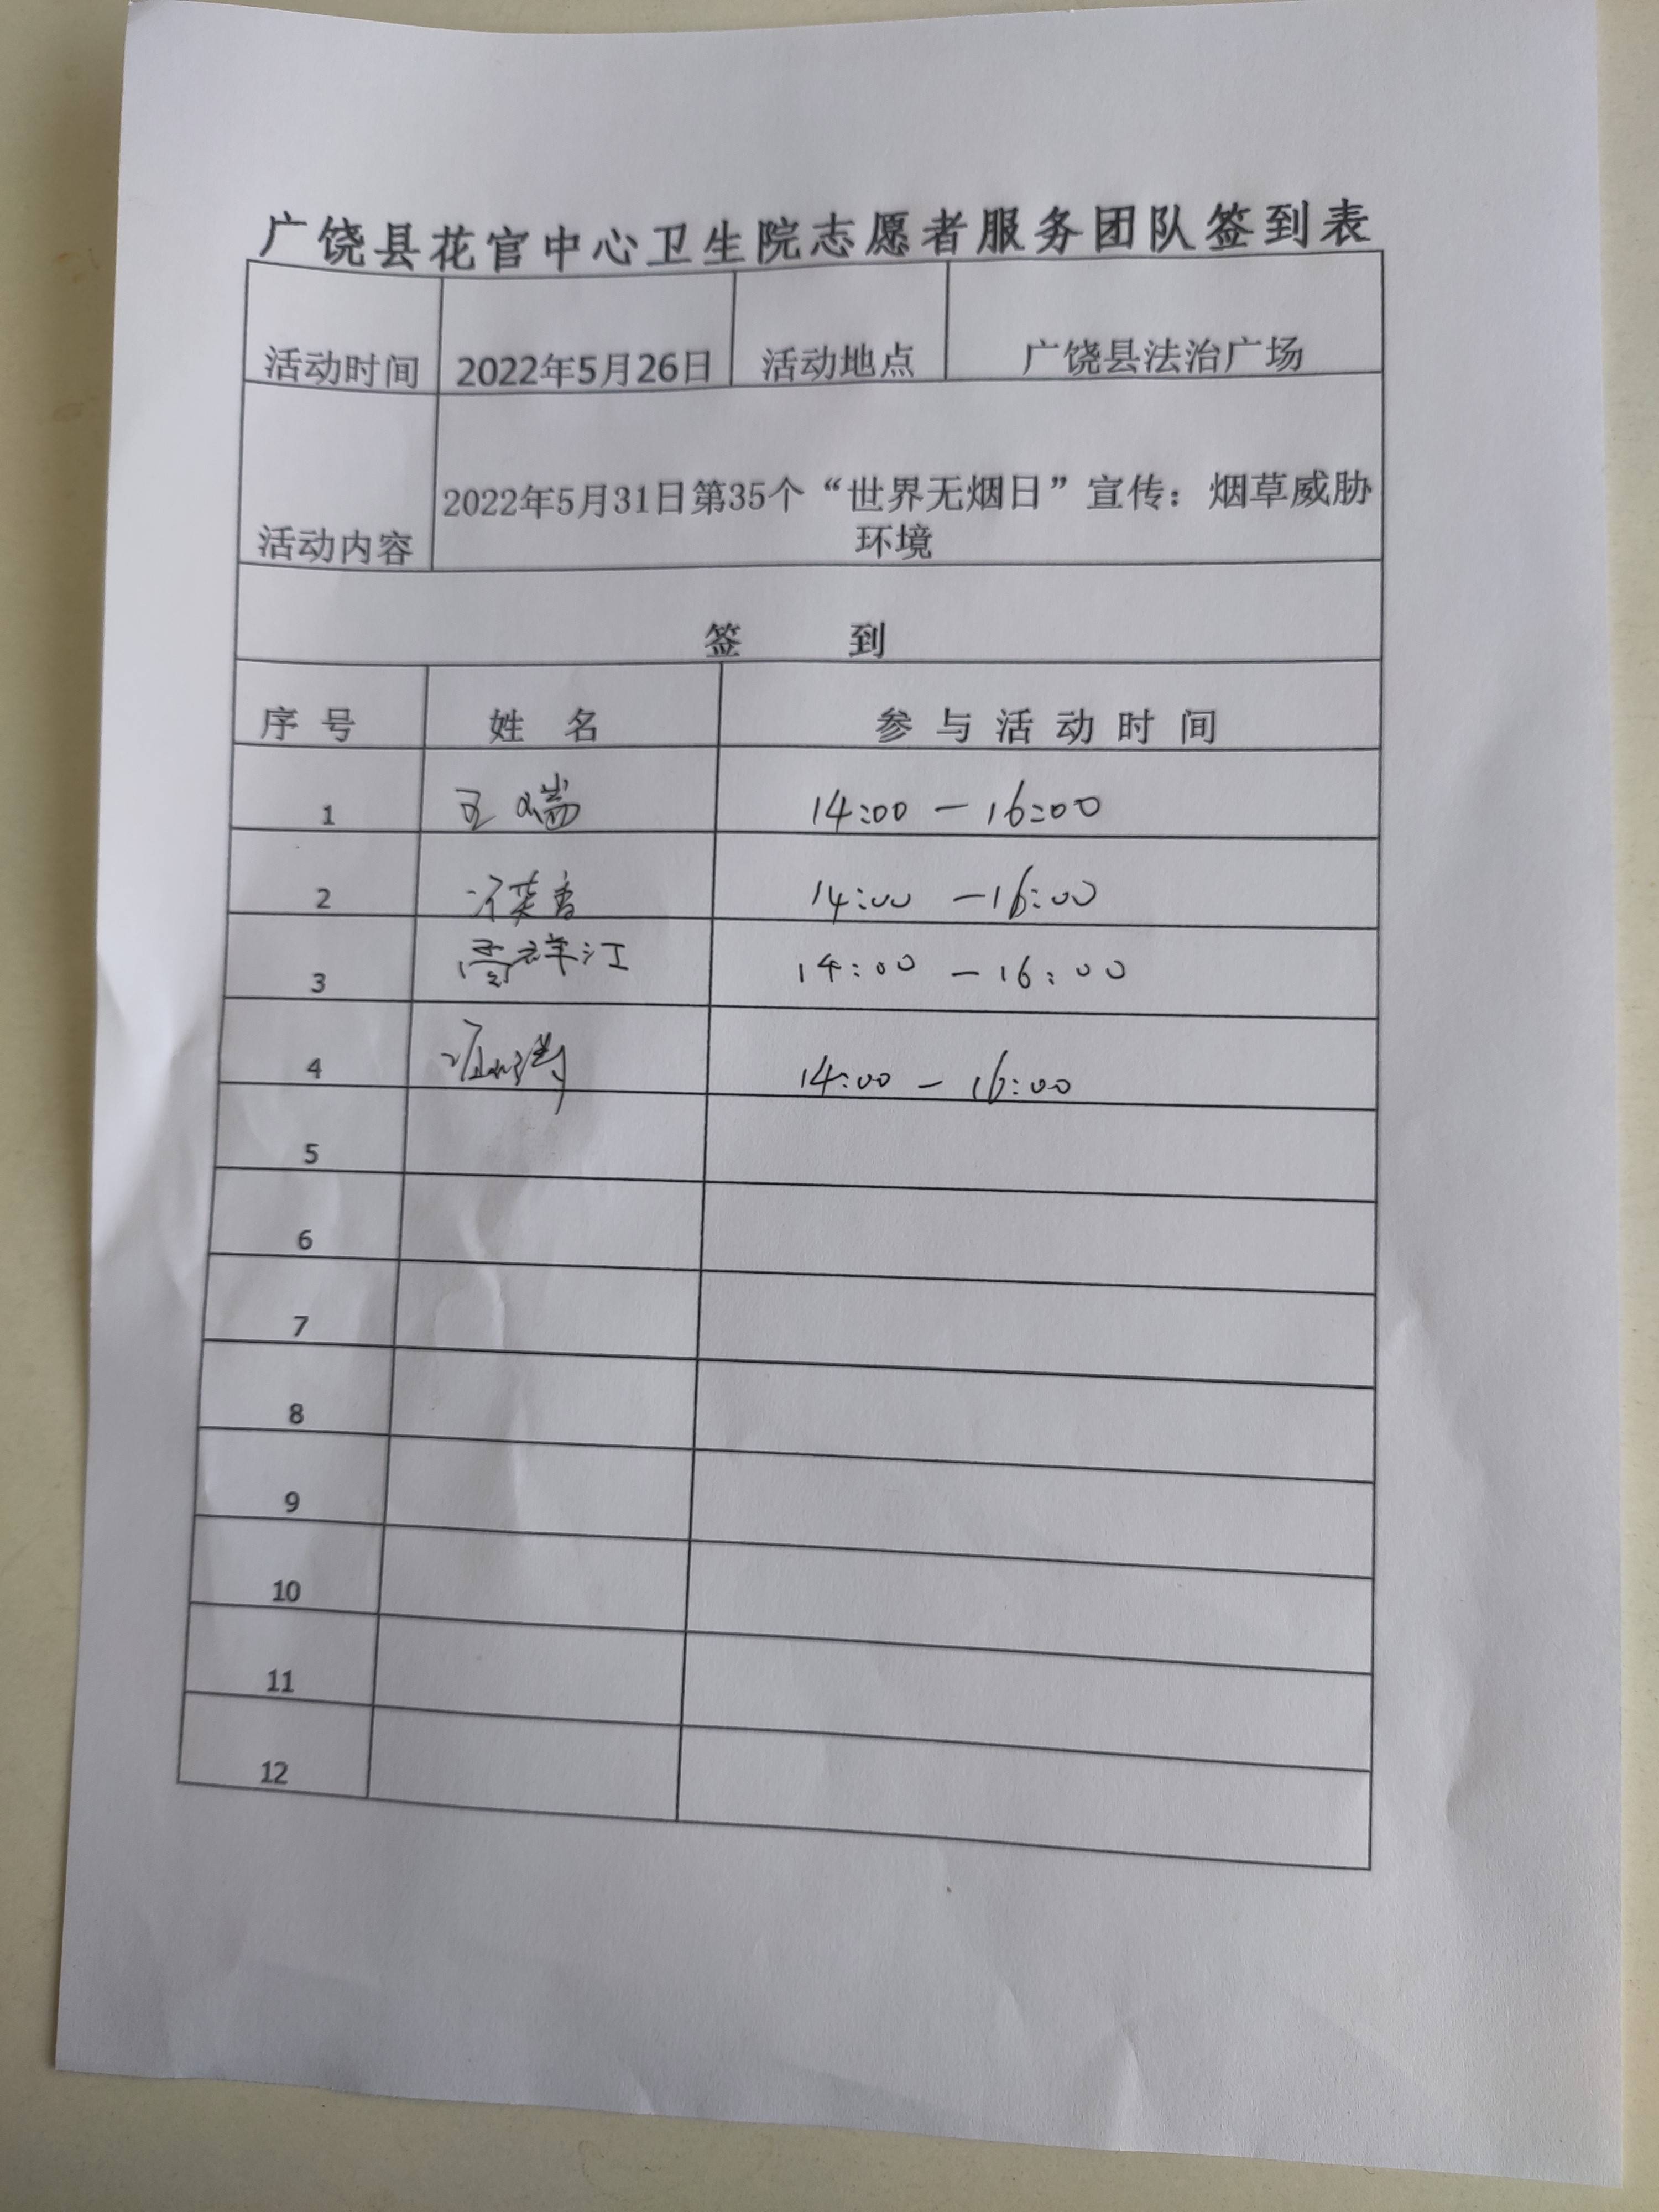 广饶县花官中心卫生院志愿者服务团队签到表
活动时间 2022年5月26日 活动地点 广饶县法治广场
活动内容 2022年5月31日第35个“世界无烟日”宣传：烟草威胁
环境
签 到
序 号 姓 名 参 与 活 动 时 间
1 14:00 — 16:00
2 14:00 — 16:00
3 祥江 14:00 — 16:00
4 14:00 — 16:00
5
6
7
8
9
10
11
12